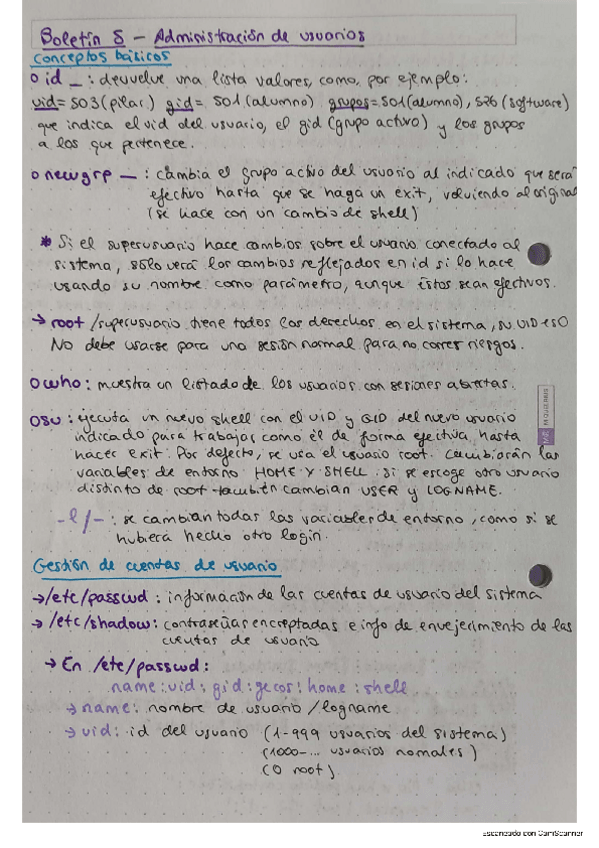 Boletín 5 - Administración de usuarios
conceptos básicos
o id _ : devuelve una lista valores, como, por ejemplo:
uid = 503 (pilar) gid = 501 (alumno) grupos = 501 (alumno), 526 (software)
que indica el uid del usuario, el gid (grupo activo) y los grupos
a los que pertenece.
o newgrp _ : cambia el grupo activo del usuario al indicado que será
efectivo hasta que se haga un exit, volviendo al original
(se hace con un cambio de shell)
* Si el superusuario hace cambios sobre el usuario conectado al
sistema, sólo verá los cambios reflejados en id si lo hace
usando su nombre como parámetro, aunque éstos sean efectivos.
→ root /superusuario tiene todos los derechos en el sistema, su UID es 0
No debe usarse para una sesión normal para no correr riesgos.
o who : muestra un listado de los usuarios con sesiones abiertas.
o su : ejecuta un nuevo shell con el UID y GID del nuevo usuario
indicado para trabajar como él de forma efectiva hasta
hacer exit. Por defecto, se usa el usuario root. Cambiarán las
variables de entorno HOME Y SHELL. Si se escoge otro usuario
distinto de root también cambian USER y LOGNAME.
-l / - : se cambian todas las variables de entorno, como si se
hubiera hecho otro login.
Gestión de cuentas de usuario
→ /etc/passwd : información de las cuentas de usuario del sistema
→ /etc/shadow : contraseñas encriptadas e info de envejecimiento de las
cuentas de usuario
→ En /etc/passwd :
name : uid : gid : gecos : home : shell
→ name : nombre de usuario / logname
→ uid : id del usuario (1-999 usuarios del sistema)
(1000-... usuarios nomales)
(0 root)
Escaneado con CamScanner